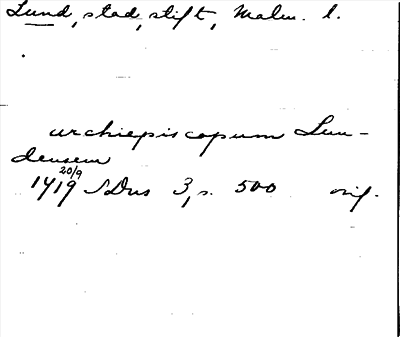 Lund, stad, stift, Malm. l.
archiepiscopum Lun-
densem
20/9
1419 SDns 3, s. 500 orig.